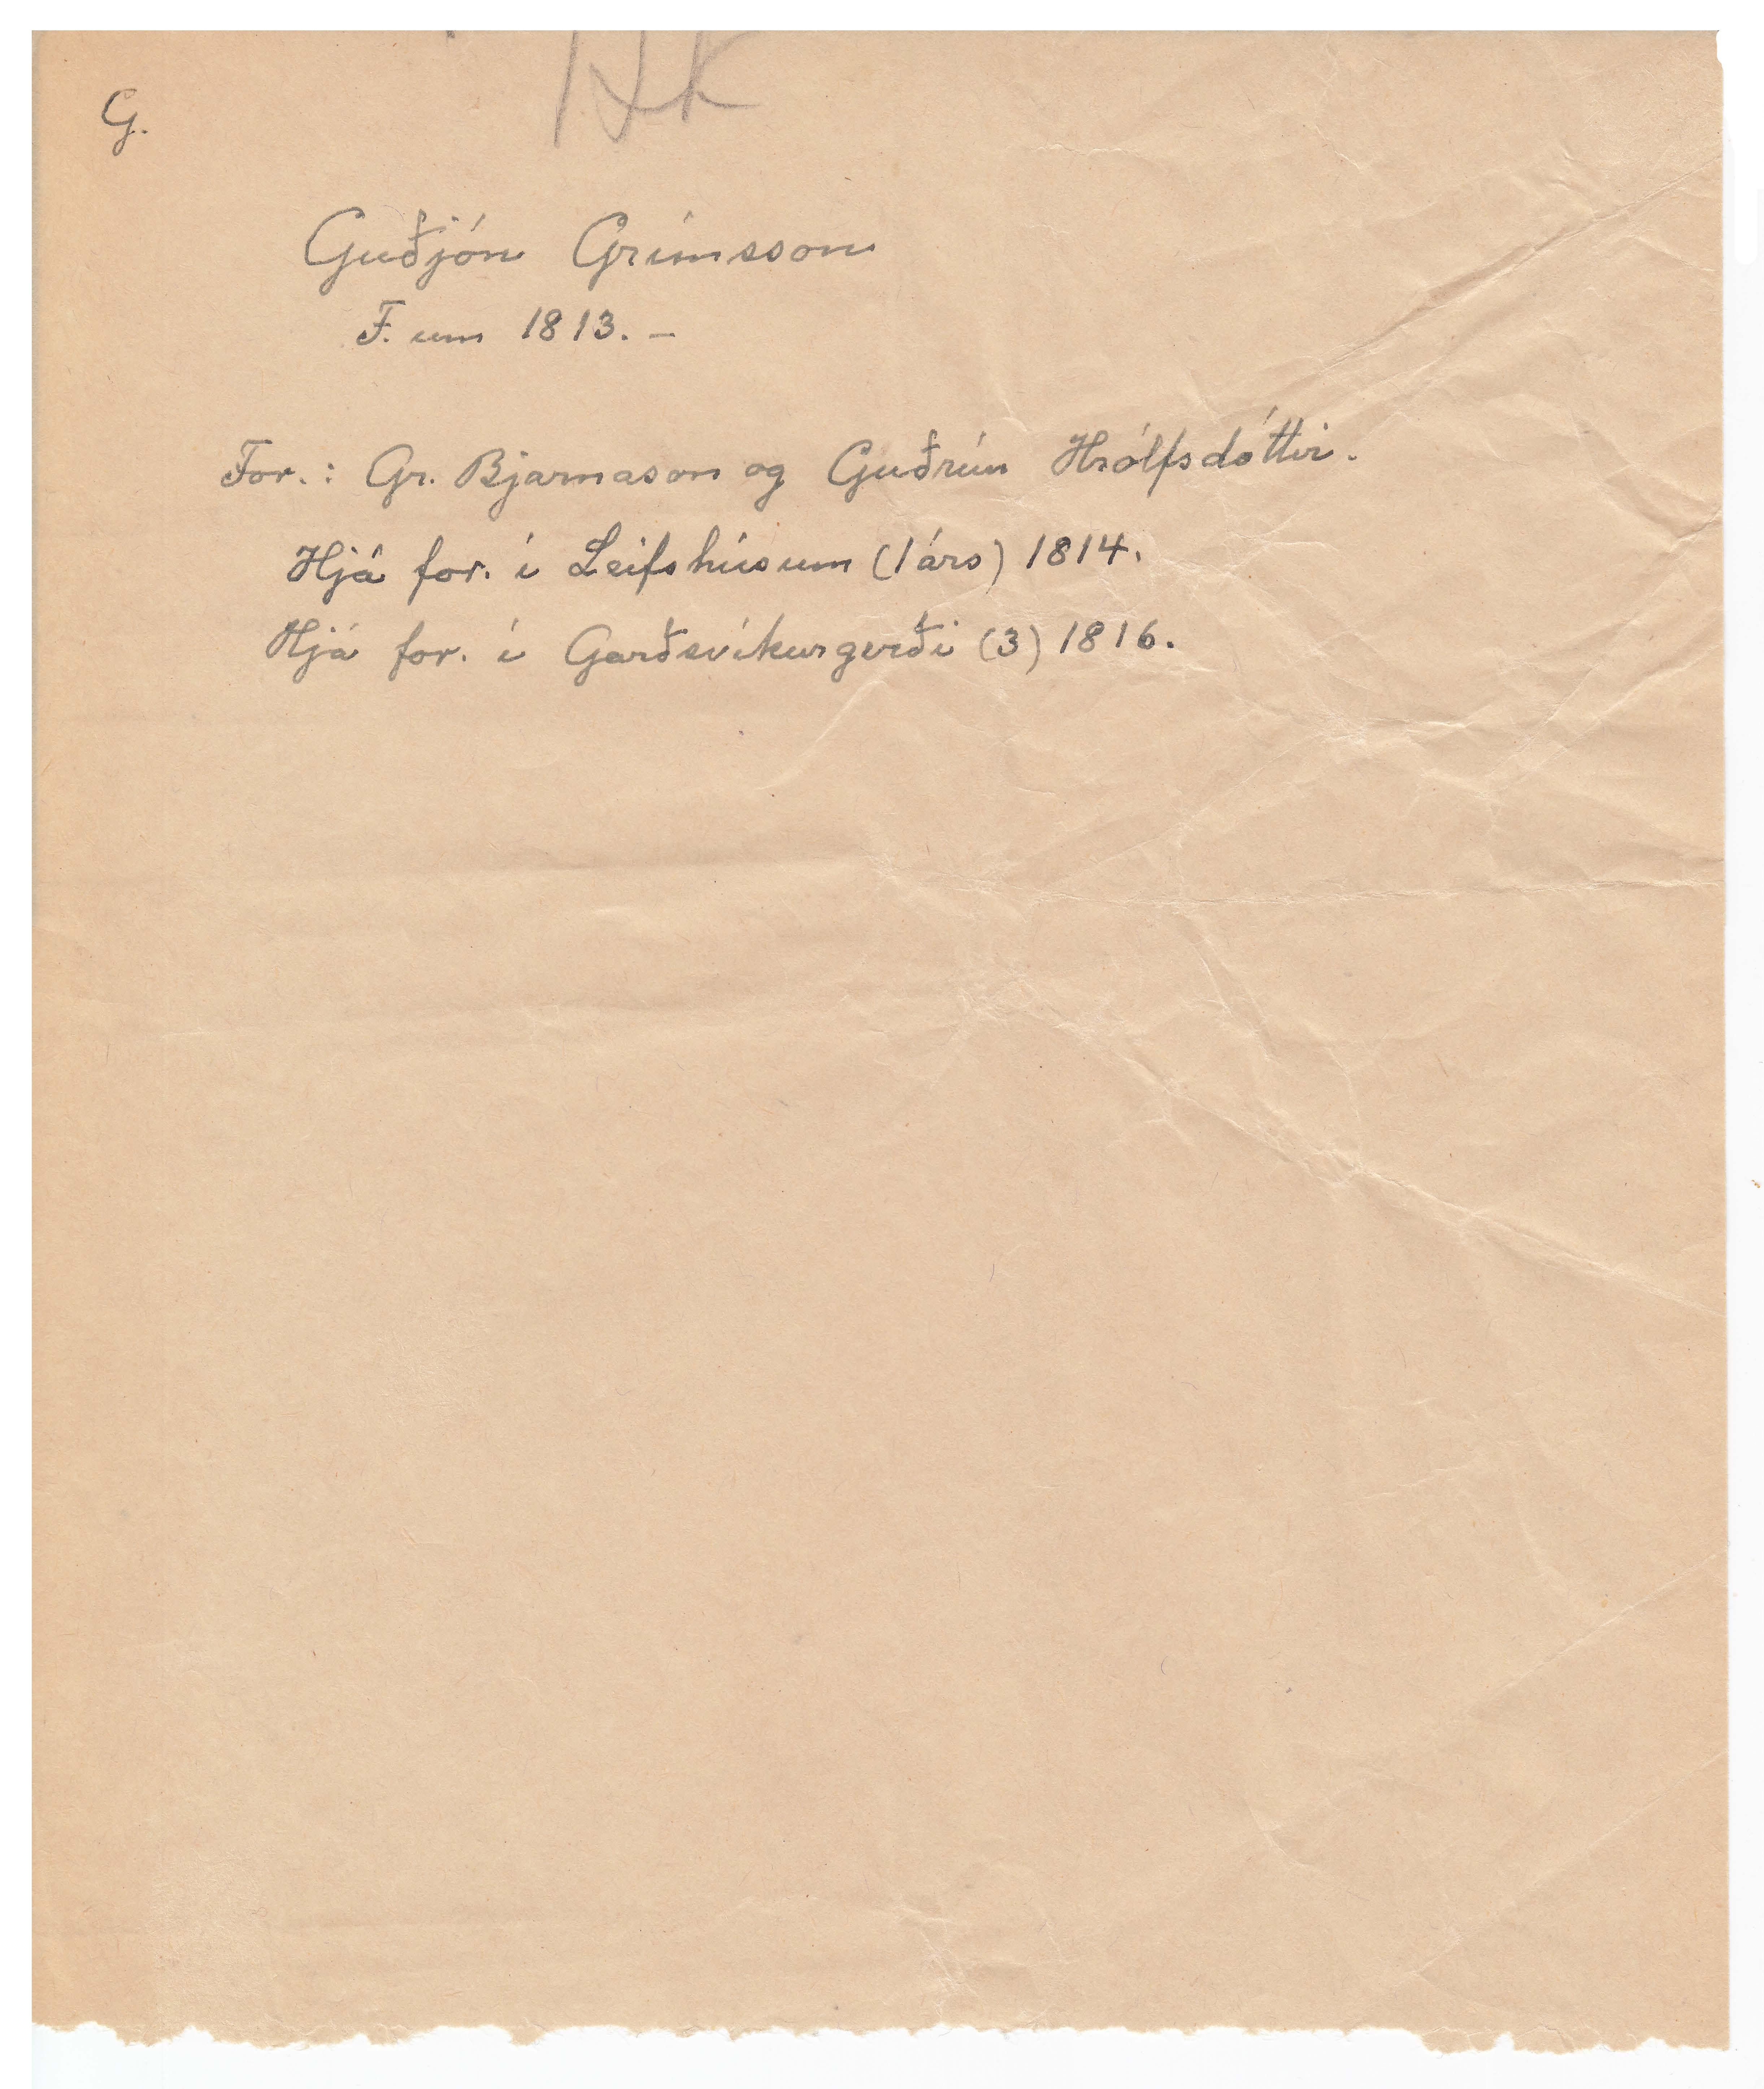 G.
Guðjón Grímsson
F. um 1813. –
For.: Gr. Bjarnason og Guðrún Hrólfsdóttir.
Hjá for. í Leifshúsum (1 árs) 1814.
Hjá for. í Garðsvíkurgerði (3) 1816.